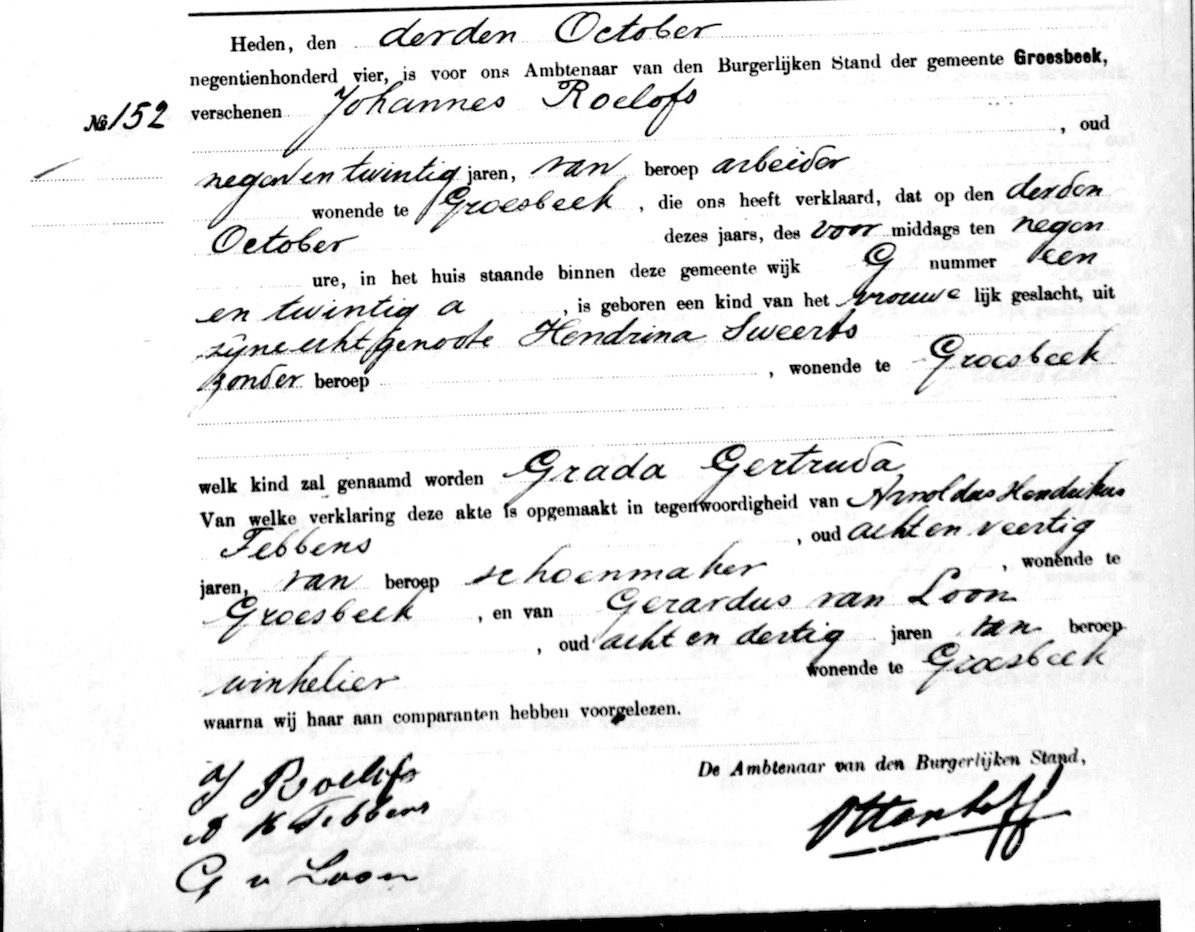 Heden, den derden October
negentienhonderd vier, is voor ons Ambtenaar van den Burgerlijken Stand der gemeente Groesbeek,
№ 152 verschenen Johannes Roelofs
, oud
negen en twintig jaren, van beroep arbeider
wonende te Groesbeek, die ons heeft verklaard, dat op den derden
October dezes jaars, des voor middags ten negen
ure, in het huis staande binnen deze gemeente wijk G nummer een
en twintig a, is geboren een kind van het vrouwelijk geslacht, uit
zijne echtgenoote Hendrina Sweerts
zonder beroep, wonende te Groesbeek
welk kind zal genaamd worden Grada Gertruda
Van welke verklaring deze akte is opgemaakt in tegenwoordigheid van Arnoldus Hendrikus
Tebbens, oud acht en veertig
jaren, van beroep schoenmaker, wonende te
Groesbeek, en van Gerardus van Loon
, oud acht en dertig jaren van beroep
winkelier wonende te Groesbeek
waarna wij haar aan comparanten hebben voorgelezen.
De Ambtenaar van den Burgerlijken Stand,
J Roelofs
A H Tebbens
Ottenhoff
G v Loon